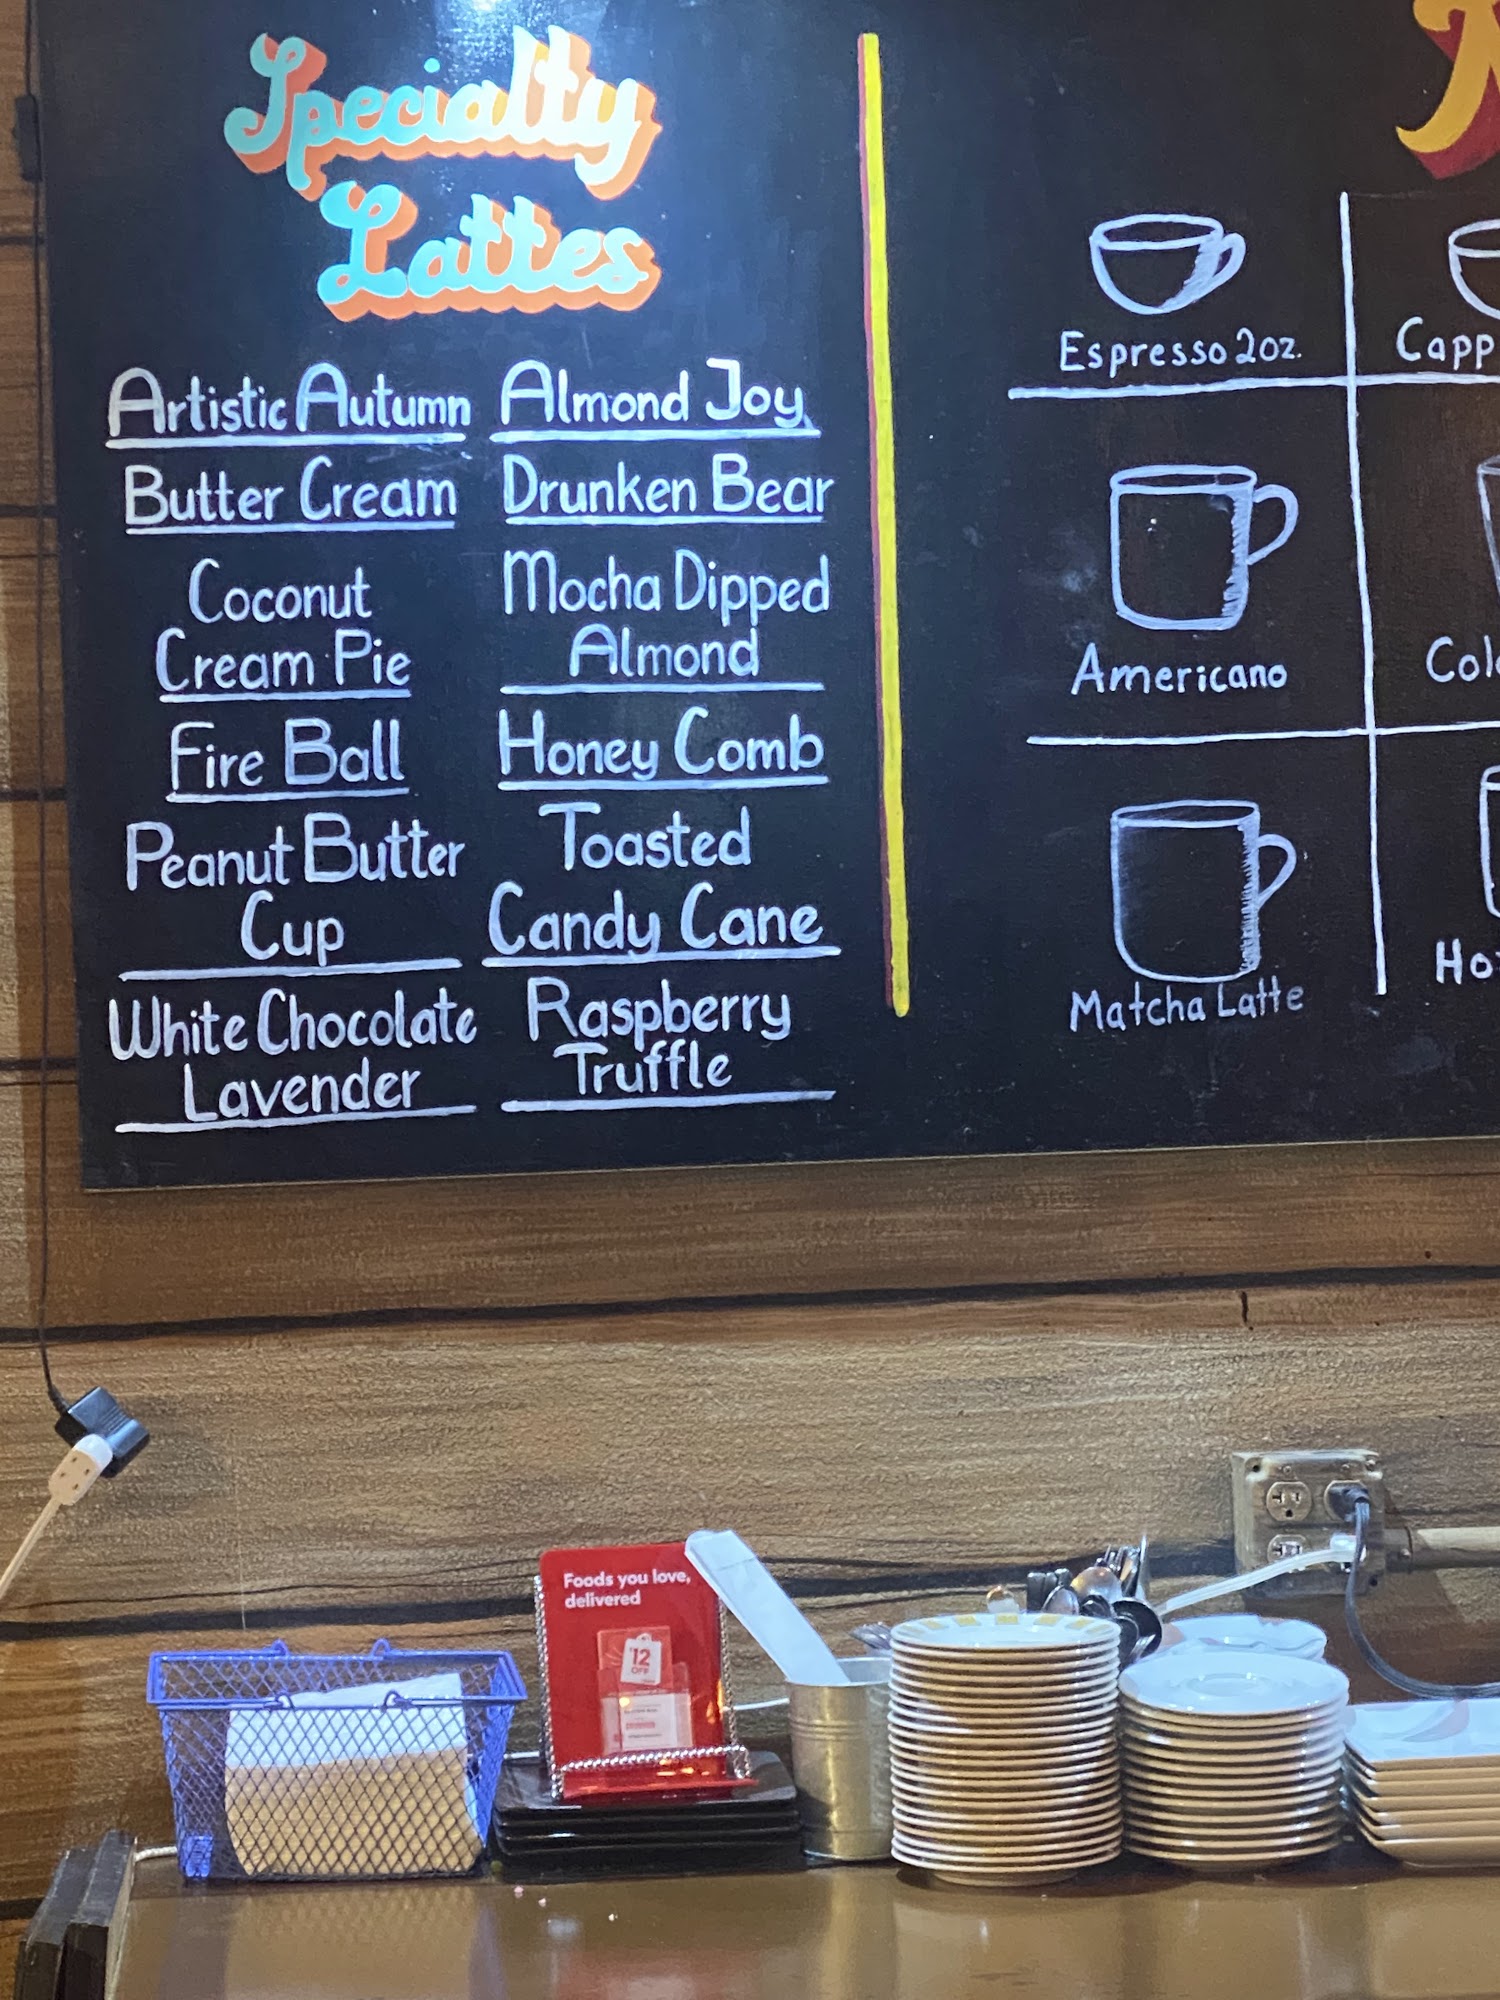 Specialty
Lattes
Artistic Autumn
Butter Cream
Coconut
Cream Pie
Fire Ball
Peanut Butter
Cup
White Chocolate
Lavender
Almond Joy
Drunken Bear
Mocha Dipped
Almond
Honey Comb
Toasted
Candy Cane
Raspberry
Truffle
Espresso 2oz.
Capp
Americano
Matcha Latte
Foods you love,
delivered
$12
OFF